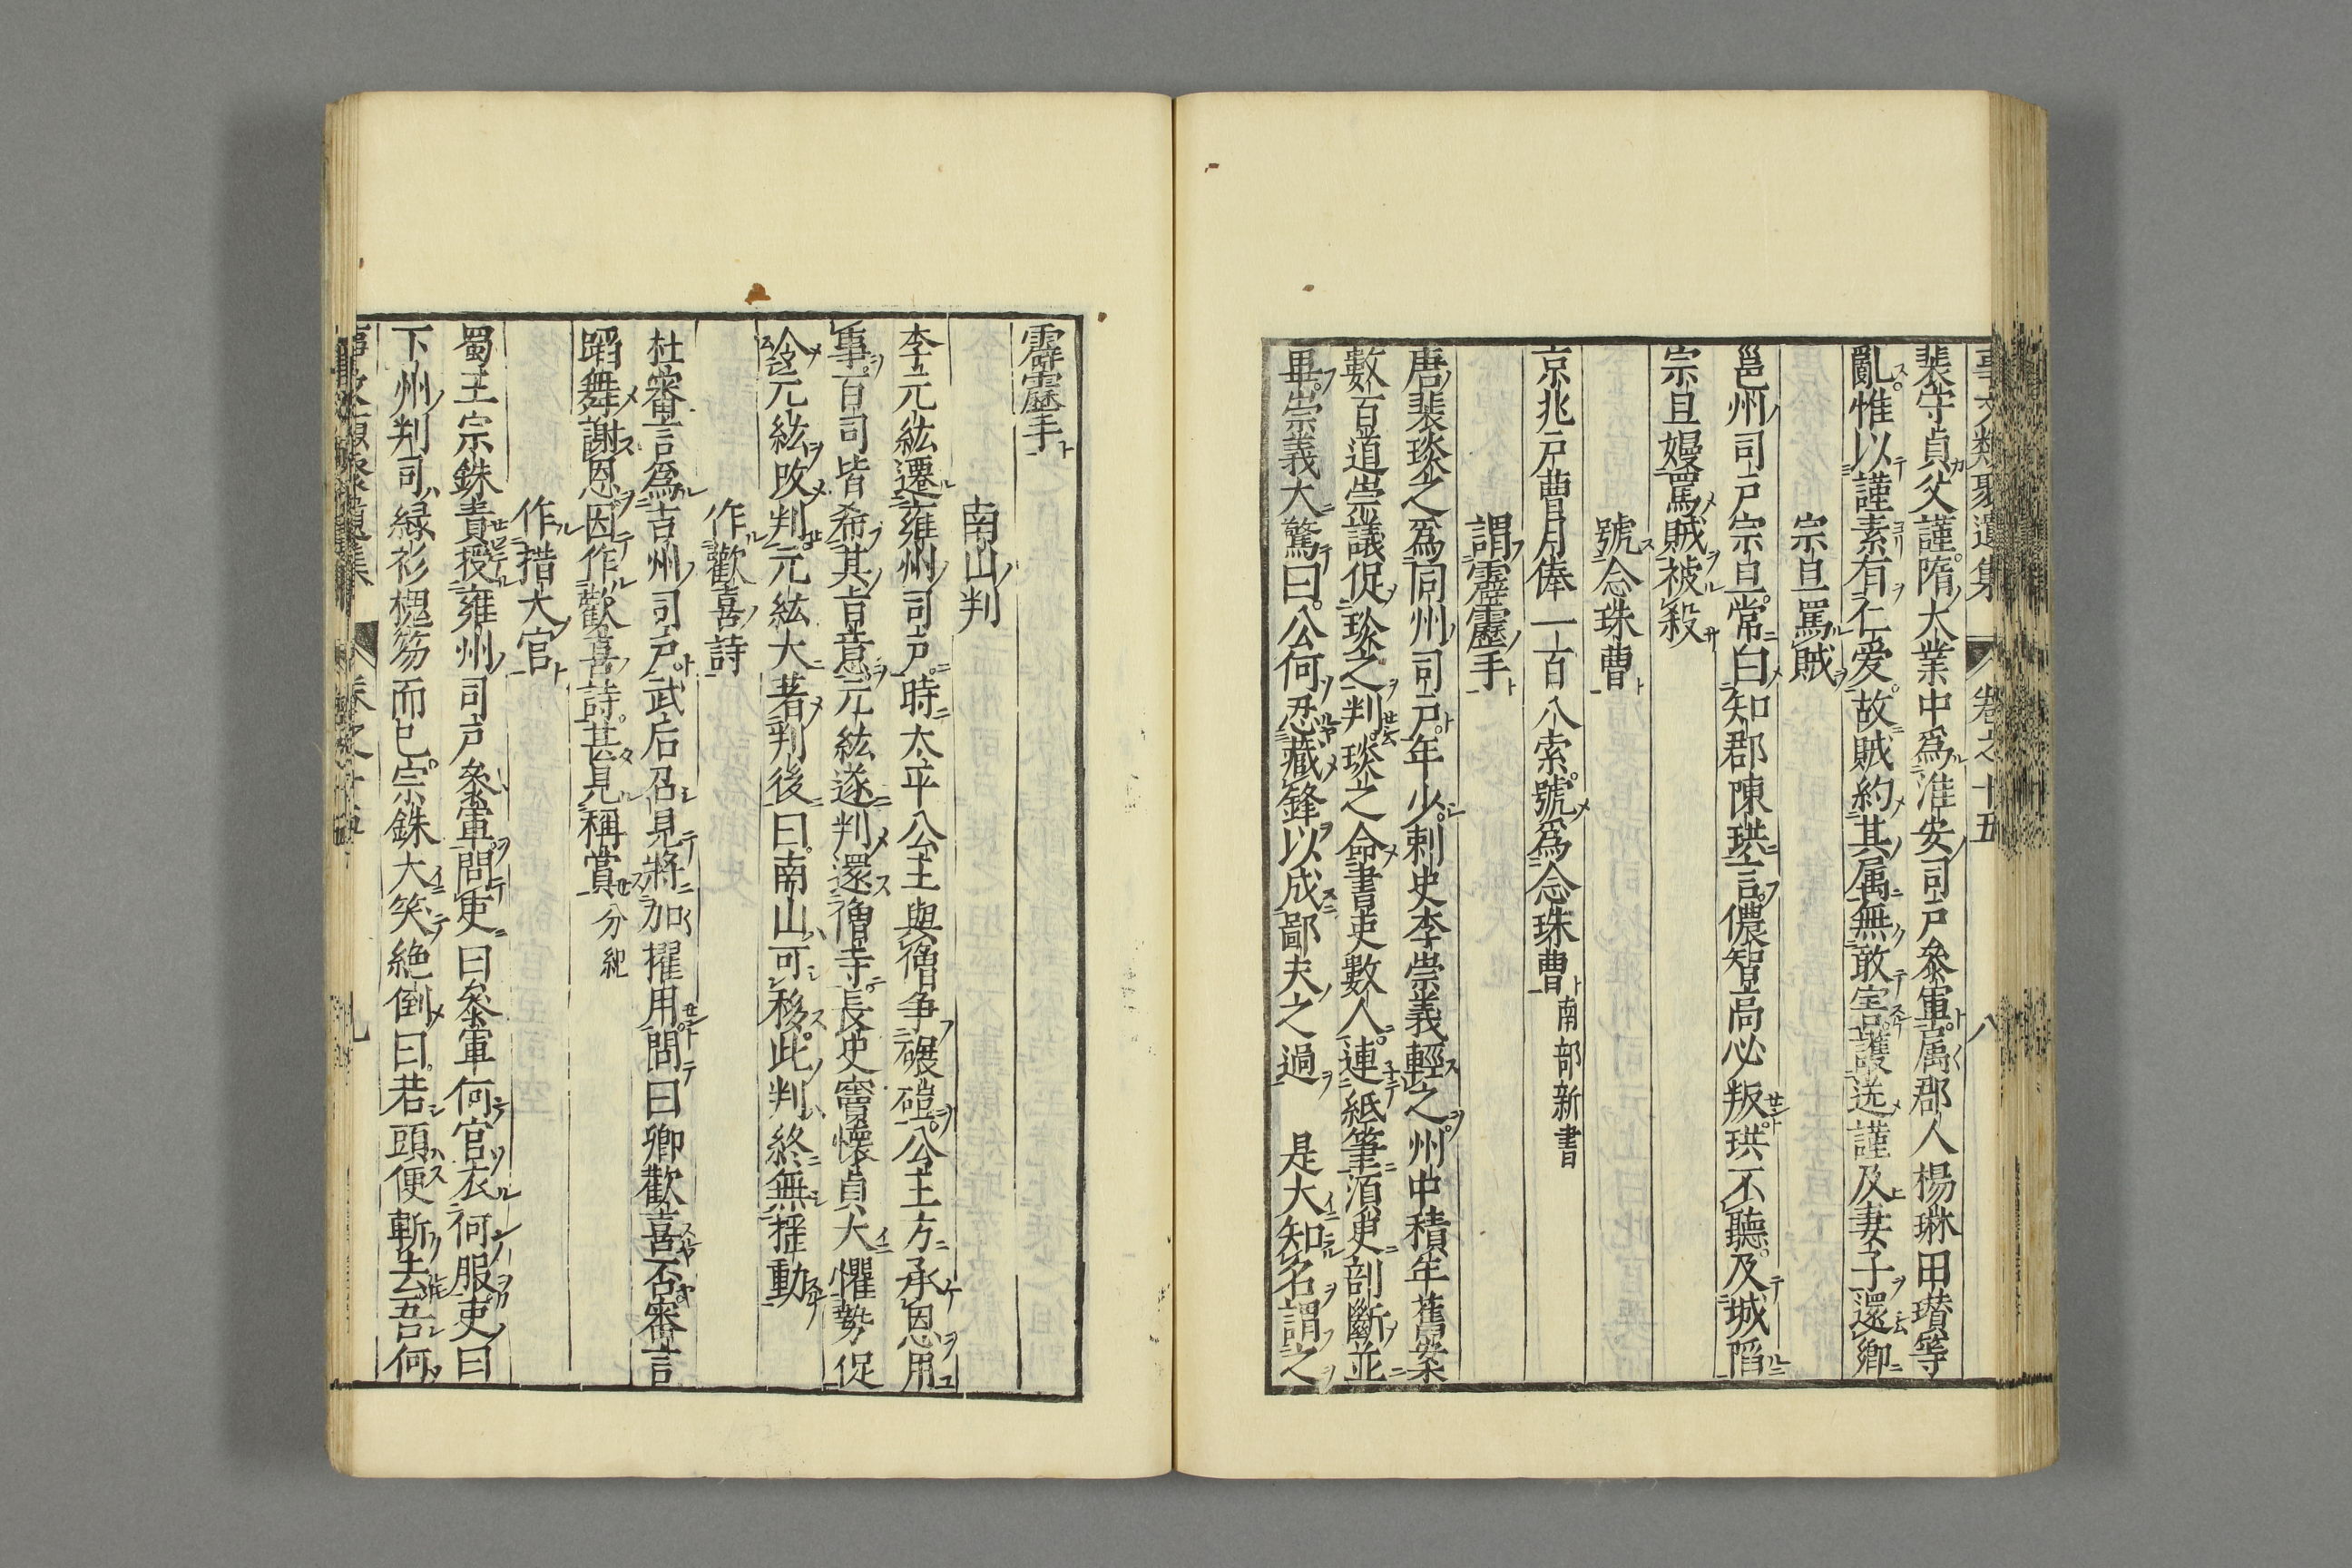 事文類聚遺集　卷之十五　八
裴守貞父謹隋大業中爲淮安司戸參軍属郡人楊琳田瓚等
亂惟以謹素有仁爱故賊約其属無敢害護送謹及妻子還卿
宗旦罵賊
邕州司戸宗旦常白知郡陳珙言儂智高必叛珙不聽及城陷
宗旦嫚罵賊被殺
號念珠曹
京兆戸曹月俸一百八索號爲念珠曹南部新書
謂霹靂手
唐裴琰之爲同州司戸年少刺史李崇義輕之州中積年舊案
數百道崇議促琰之判琰之命書吏數人連紙筆湏臾剖斷並
畢崇義大驚曰公何忍藏鋒以成鄙夫之過　是大知名謂之
霹靂手
南山判
李元紘遷雍州司戸時太平公主與僧争碾磑公主方承恩用
事百司皆希其旨意元紘遂判還僧寺長史竇懷貞大懼勢促
令元紘改判元紘大著判後曰南山可移此判終無揺動
作歡喜詩
杜審言爲吉州司戸武后召見將加擢用問曰卿歡喜否審言
蹈舞謝恩因作歡喜詩甚見稱賞分紀
作措大官
蜀王宗銖責授雍州司戸參軍問吏曰參軍何官衣何服吏曰
下州判司緑衫槐笏而已宗銖大笑絶倒曰若頭便斬去吾何
事文類聚遺集　卷之十五　九